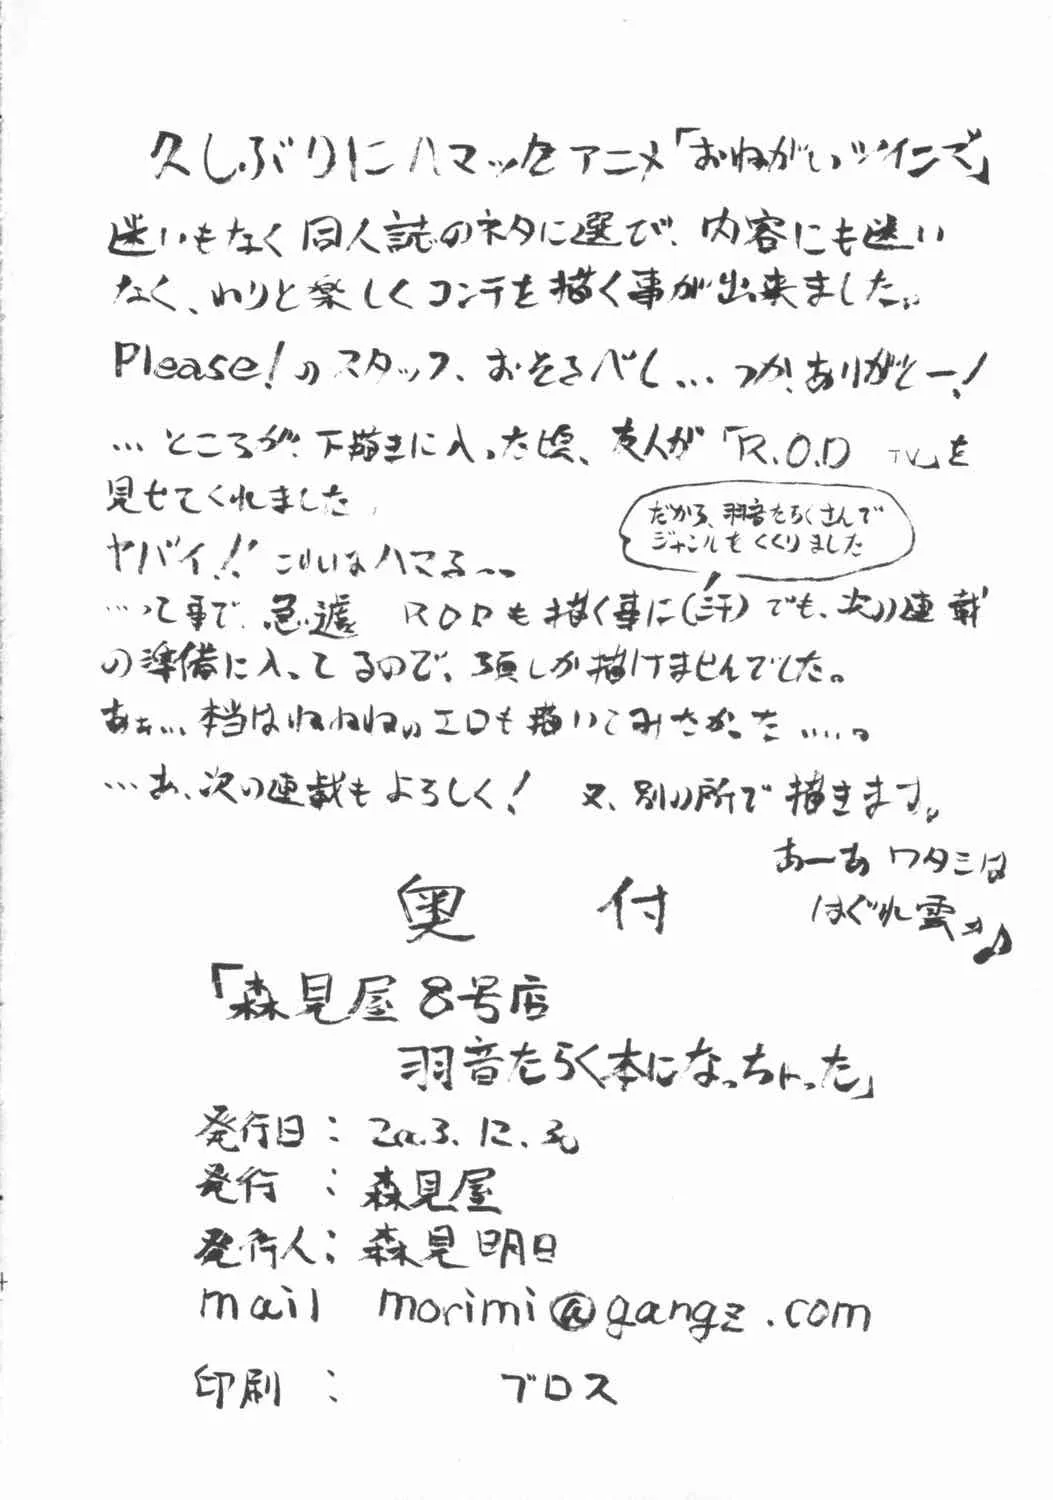 久しぶりにハマッたアニメ「おねがいツインズ」
迷いもなく同人誌のネタに選び、内容にも迷い
なく、わりと楽しくコンテを描く事が出来ました。
Please!のスタッフ、おそるべし…つか、ありがとー!
…ところが、下描きに入った頃、友人が「R.O.D TV」を
見せてくれました。
だから、羽音たらくさんで
ジャンルをくくりました
ヤバイ!! こりぃなハマる〜〜
…って事で、急遽 RODも描く事に(汗)でも、次の連載
の準備に入ってるので、3頁しか描けませんでした。
あぁ…本当はねねねのエロも描いてみたかった……。
…あ、次の連載もよろしく! 又、別の所で描きます。
あーあ ワタシは
はぐれ雲ォ♪
奥付
「森見屋8号店
羽音たらく本になっちゃった」
発行日:2003.12.30
発行 :森見屋
発行人:森見明日
mail morimi@gangz.com
印刷 : ブロス